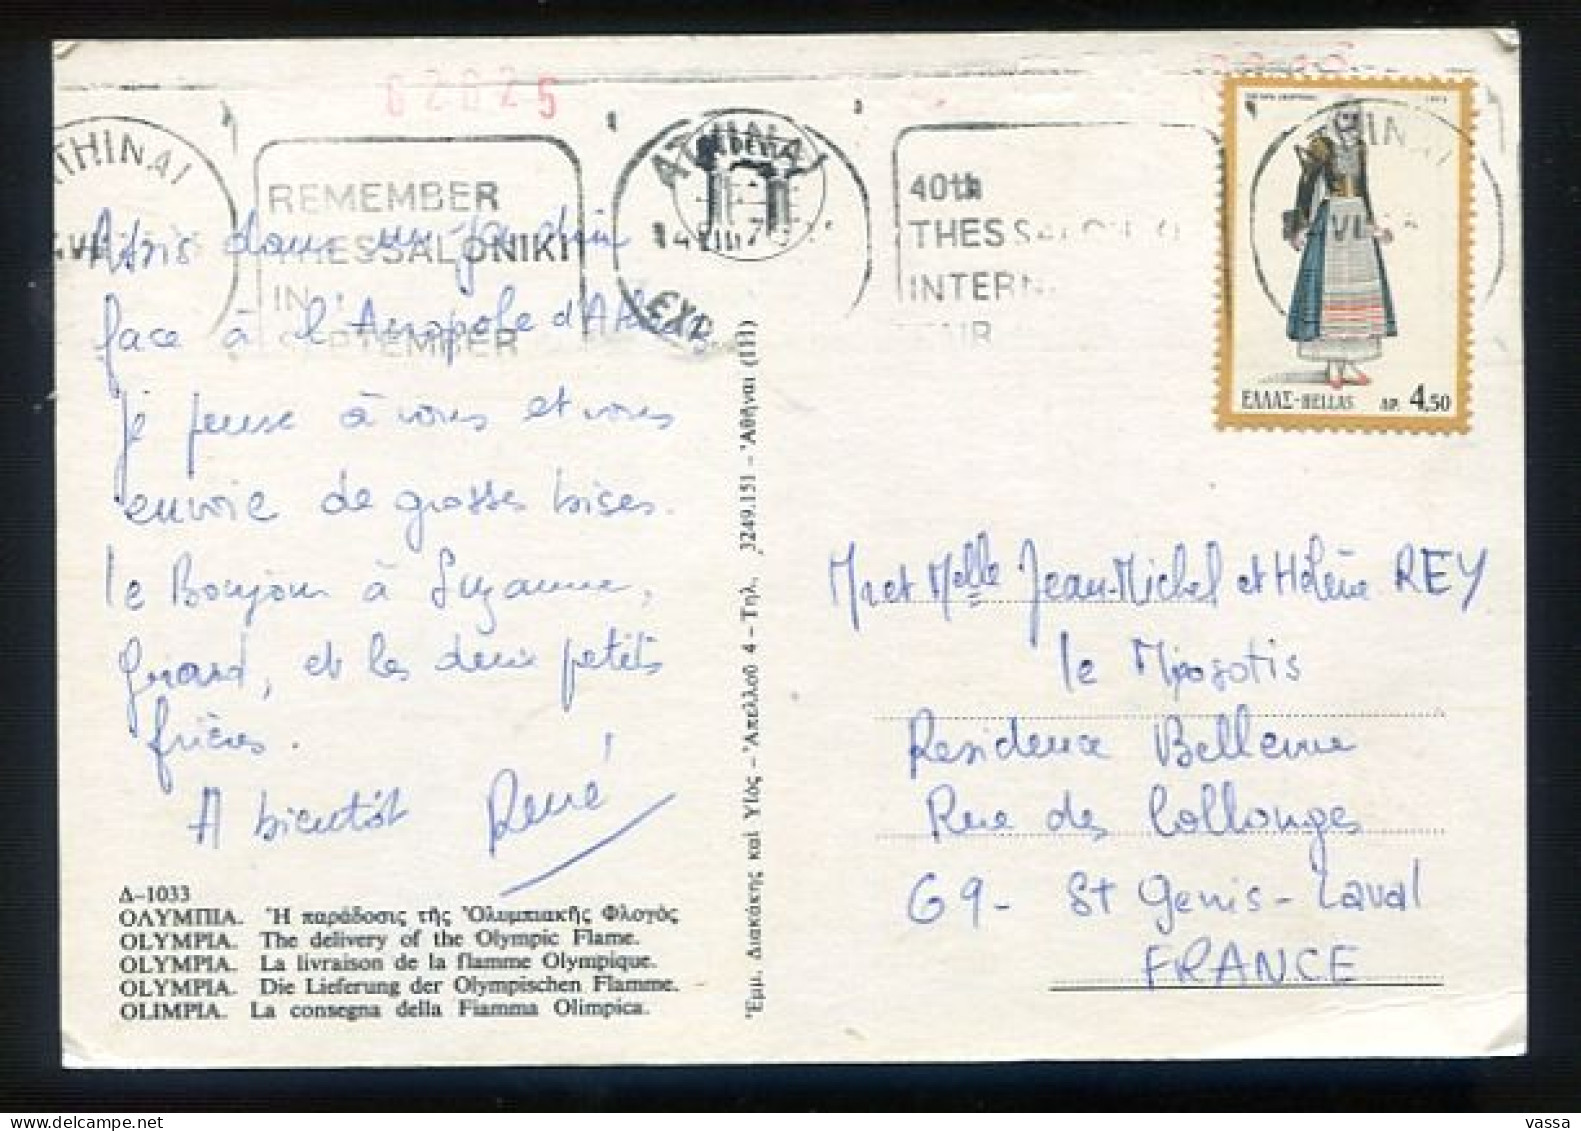 62625
ATHINAI
REMEMBER
THESSALONIKI
IN
SEPTEMBER
ATHINAI
EXP.
40th
THESSALONIKI
INTERN
FAIR
ATHINAI
ΕΛΛΑΣ-HELLAS ΔΡ. 4,50
Assis dans un jardin
face à l'Acropole d'Athènes
je pense à vous et vous
envoie de grosses bises.
le Bonjour à Suzanne,
Girard, et les deux petits
frères.
A bientôt René
Δ-1033
ΟΛΥΜΠΙΑ. Ἡ παράδοσις τῆς Ὀλυμπιακῆς Φλογός
OLYMPIA. The delivery of the Olympic Flame.
OLYMPIA. La livraison de la flamme Olympique.
OLYMPIA. Die Lieferung der Olympischen Flamme.
OLIMPIA. La consegna della Fiamma Olimpica.
Ἐμμ. Διακάκης καὶ Υἱός - Ἀπελλοῦ 4 - Τηλ. 3249.151 - Ἀθῆναι (111)
Mr et Melle Jean-Michel et Hélène REY
le Myosotis
Residence Bellevue
Rue des Collonges
69- St Genis-Laval
FRANCE
vassa